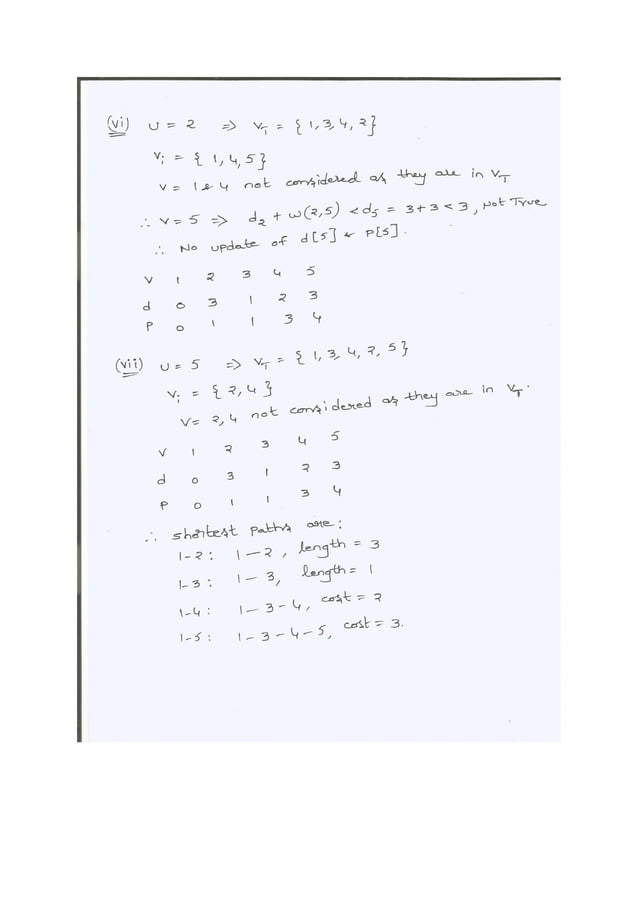 (vi) U = 2 ⇒ V_T = { 1, 3, 4, 2}
V_i = { 1, 4, 5}
V = 1 & 4 not considered as they are in V_T
∴ V = 5 ⇒ d_2 + w(2,5) < d_5 = 3+3 < 3, Not True
∴ No update of d[5] & P[5].
V 1 2 3 4 5
d 0 3 1 2 3
P 0 1 1 3 4
(vii) U = 5 ⇒ V_T = { 1, 3, 4, 2, 5}
V_i = { 2, 4 }
V = 2, 4 not considered as they are in V_T.
V 1 2 3 4 5
d 0 3 1 2 3
P 0 1 1 3 4
∴ shortest paths are:
1-2: 1 — 2, length = 3
1-3: 1 — 3, length = 1
1-4: 1 — 3 - 4, cost = 2
1-5: 1 - 3 - 4 - 5, cost = 3.